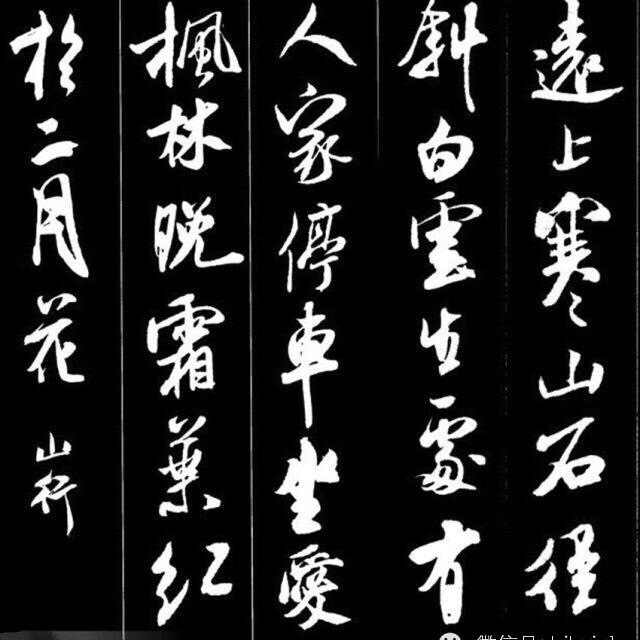 遠上寒山石徑
斜白雲生處有
人家停車坐愛
楓林晚霜葉紅
於二月花
山行